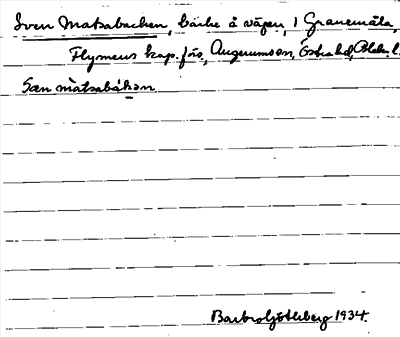 Sven Matsabacken, backe å vägen, i Granemåla,
Flymens kap. förs., Augerums sn, Östra hd, Blek. l.
Sæn màtsabákən
Barbro Götleberg 1934.